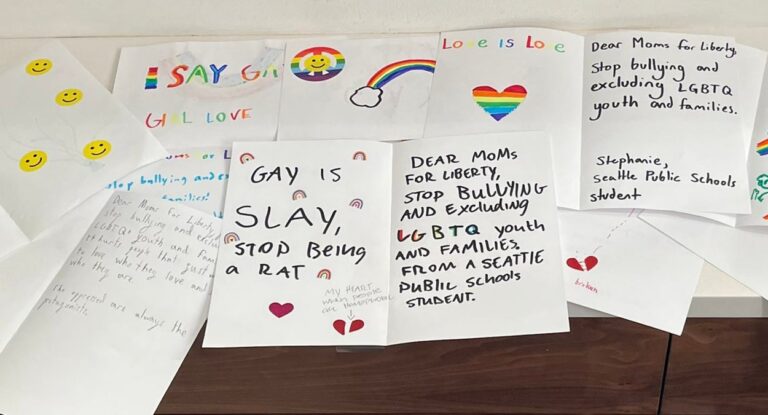 I SAY GA
GIRL LOVE
Love is Love
Dear Moms for Liberty,
Stop bullying and
excluding LGBTQ
youth and families.
Stephanie,
Seattle Public Schools
student
stop bullying and
families!
Dear Moms For Liberty,
stop bullying and
LGBTQ+ youth and
it hurts people that just
to love who they love and
who they are.
The oppressed are always the
GAY IS
SLAY,
STOP BEing
a RAT
MY HEART
when people
are homophobic
DEAR MOMS
FOR LIBERTY,
STOP BULLYING
AND EXCLUDING
LGBTQ youth
AND FAMILIES,
FROM A SEATTLE
PUBLIC SCHOOLS
STUDENT.
broken